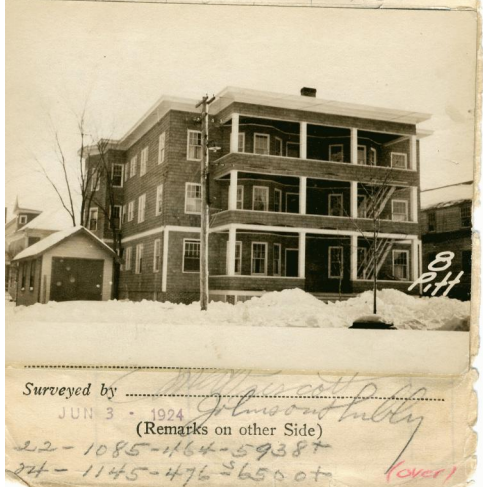 8
Ritt
Surveyed by
JUN 3 - 1924 Johnson
(Remarks on other Side)
22 - 1085 - 464 - 5938+
24 - 1145 - 476 - 6500+
(over)